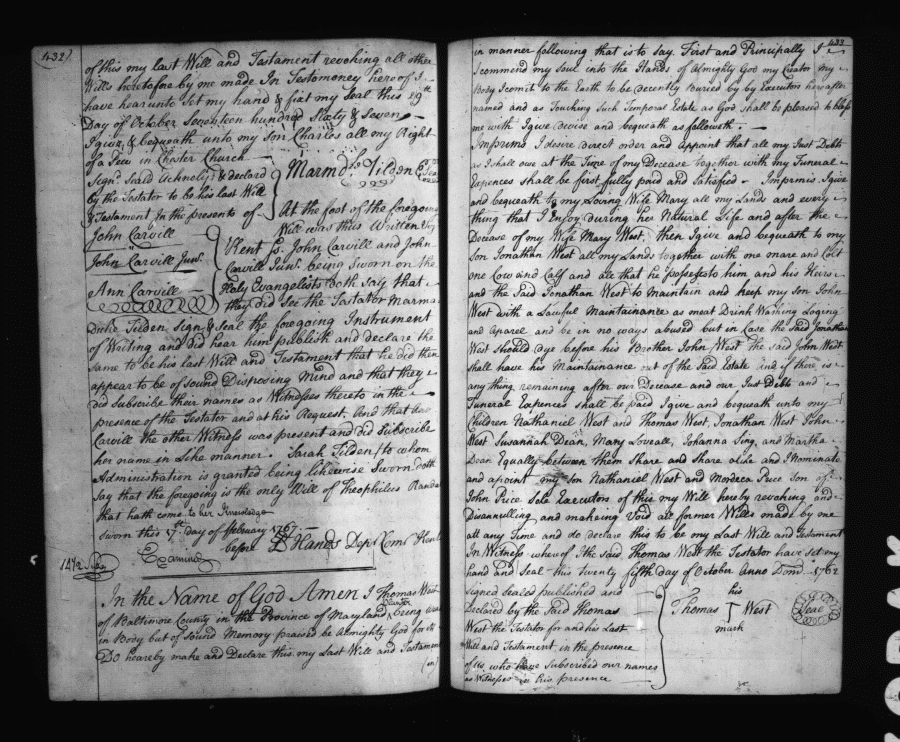 432)
of this my last Will and Testament revoking all other
Wills heretofore by me made In Testomoney
have hearunto Set my hand & fixt my Seal this 29th
Day of October Seventeen hundred Sixty & Seven
I give & bequeath unto my Son Charles all my Right
of a Pew in Chester Church
Signd Seald Acknolg'd & declard
by the Testator to be his last Will
& Testament In the presents of
John Carvill
John Carvill Junr.
Ann Carvill
Marmd.ke Tilden
Seal
At the foot of the foregoing
Will was thus Written Viz
Kent Co. John Carvill and John
Carvill Junr. being Sworn on the
Holy Evangelists doth say that
they did See the Testator Marma
Duke Tilden sign & Seal the foregoing Instrument
of Writing and did hear him publish and declare the
same to be his last Will and Testament that he did then
appear to be of sound Disposing Mind and that they
did subscribe their names as Witnesses thereto in the
presence of the Testator and at his Request, And that Ann
Carvill the other Witness was present and did Subscribe
her name in Like manner. Sarah Tilden (to whom
Administration is granted being likewise Sworn doth
Say that the foregoing is the only Will of Theophilus Randa
that hath come to her Knowledge
Sworn this 17th day of February 1767.
before Hands Dept Com Kent
Examined
In the Name of God Amen I Thomas West
of Baltimore County in the Province of Maryland being weak
in Body but of Sound Memory praised be Almighty God for it
Do heareby make and Declare this my Last Will and Testament
(in)
433
in manner following that is to say First and Principally I
recommend my soul into the Hands of Almighty God my Creator my
Body I comit to the Earth to be decently Buried by by Executors hereafter
named and as Touching Such Temporal Estate as God shall be pleased to bless
me with I give devise and bequeath as followeth.
Imprims I desire direct order and appoint that all my Just Debts
as I shall owe at the Time of my Decease together with my Funeral
Expences shall be first fully paid and Satisfied - Imprimis I give
and bequeath to my Loving Wife Mary all my Lands and every
thing that I Enjoy during her Natural Life and after the
Decease of my Wife Mary West, then I give and bequeath to my
Son Jonathan West all my Lands together with one mare and Colt
one Cow and Calf and all that he possess to him and his Heirs
and the Said Jonathan West to Maintain and keep my Son John
West with a Lawful Maintainance as meat Drink Washing Loging
and aparel and be in no ways abused but in Case the Said Jonathan
West should dye before his Brother John West the said John West
shall have his Maintainance out of the Said Estate and if there is
any thing remaining after our Decease and our Just Debts and
Funeral Expences shall be paid I give and bequeath unto my
Children Nathaniel West and Thomas West, Jonathan West John
West Susannah Dean, Mary Loveall, Johanna Sing, and Martha
Dean Equally between them Share and Share alike and I Nominate
and apoint my Son Nathaniel West and Mordeca Price Son of
John Price Sole Executors of this my Will hereby revoking and
Disannulling and makeing Void all former Wills made by me
all any Time and do declare this to be my Last Will and Testament
In Witness whereof I the said Thomas West the Testator have set my
hand and Seal this twenty fifth day of October Anno Domd. 1762
Signed Sealed published and
Declared by the Said Thomas
West the Testator for and his Last
Will and Testament in the presence
of us who have Subscribed our names
as Witnesses in his presence
his
Thomas T West
mark
Seal